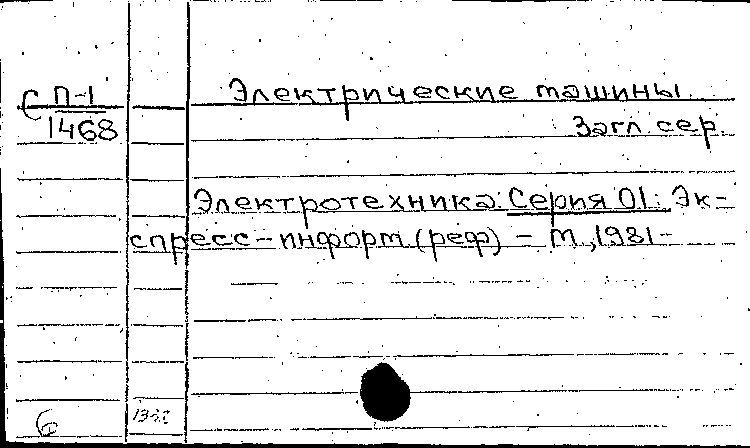 Электрические машины.
С П-1
1468
Загл. сер.
Электротехника: Серия 01: Эк-
спресс-информ(реф) - М, 1981-
6